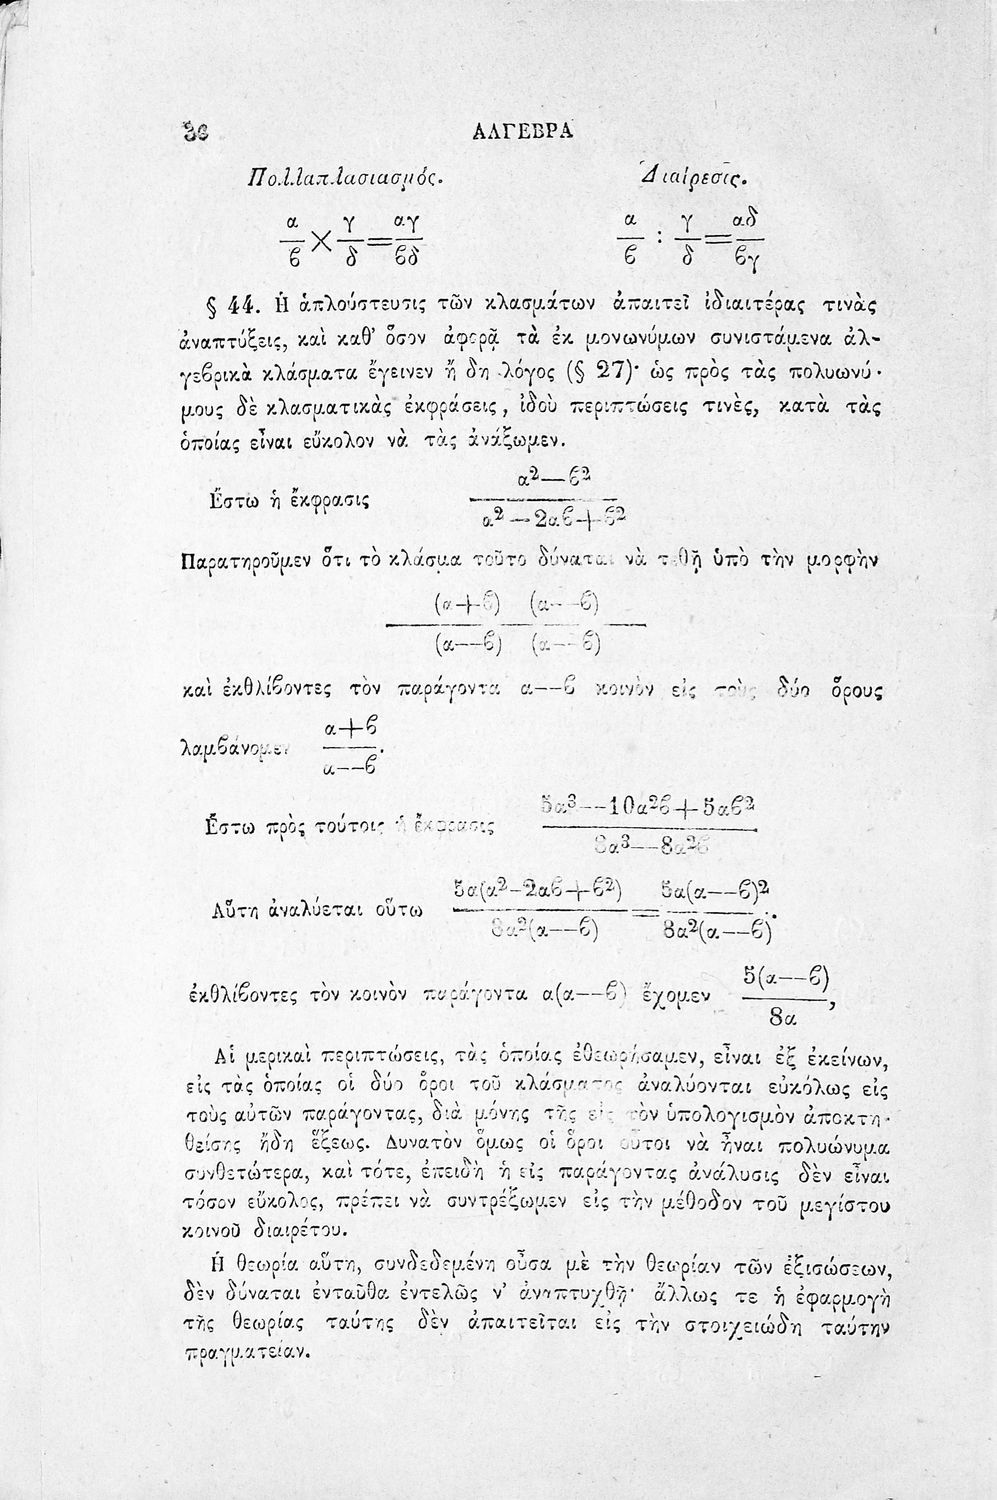 36 ΑΛΓΕΒΡΑ
Πολλαπλασιασμός. Διαίρεσις.
α/β × γ/δ = αγ/βδ α/β : γ/δ = αδ/βγ
§ 44. Ἡ ἁπλούστευσις τῶν κλασμάτων ἀπαιτεῖ ἰδιαιτέρας τινὰς
ἀναπτύξεις, καὶ καθ’ ὅσον ἀφορᾷ τὰ ἐκ μονωνύμων συνιστάμενα ἀλ-
γεβρικὰ κλάσματα ἔγεινεν ἤδη λόγος (§ 27)· ὡς πρὸς τὰς πολυωνύ-
μους δὲ κλασματικὰς ἐκφράσεις, ἰδοὺ περιπτώσεις τινὲς, κατὰ τὰς
ὁποίας εἶναι εὔκολον νὰ τὰς ἀνάξωμεν.
Ἔστω ἡ ἔκφρασις (α²—β²)/(α²—2αβ+β²)
Παρατηροῦμεν ὅτι τὸ κλάσμα τοῦτο δύναται νὰ τεθῇ ὑπὸ τὴν μορφὴν
(α+β) (α—β)/(α—β) (α—β)
καὶ ἐκθλίβοντες τὸν παράγοντα α—β κοινὸν εἰς τοὺς δύο ὅρους
λαμβάνομεν (α+β)/(α—β).
Ἔστω πρὸς τούτοις ἡ ἔκφρασις (5α³—10α²β+5αβ²)/(8α³—8α²β)
Αὕτη ἀναλύεται οὕτω 5α(α²-2αβ+β²)/8α²(α—β) = 5α(α—β)²/8α²(α—β)·
ἐκθλίβοντες τὸν κοινὸν παράγοντα α(α—β) ἔχομεν 5(α—β)/8α,
Αἱ μερικαὶ περιπτώσεις, τὰς ὁποίας ἐθεωρήσαμεν, εἶναι ἐξ ἐκείνων,
εἰς τὰς ὁποίας οἱ δύο ὅροι τοῦ κλάσματος ἀναλύονται εὐκόλως εἰς
τοὺς αὐτῶν παράγοντας, διὰ μόνης τῆς εἰς τὸν ὑπολογισμὸν ἀποκτη-
θείσης ἤδη ἕξεως. Δυνατὸν ὅμως οἱ ὅροι οὗτοι νὰ ἦναι πολυώνυμα
συνθετώτερα, καὶ τότε, ἐπειδὴ ἡ εἰς παράγοντας ἀνάλυσις δὲν εἶναι
τόσον εὔκολος, πρέπει νὰ συντρέξωμεν εἰς τὴν μέθοδον τοῦ μεγίστου
κοινοῦ διαιρέτου.
Ἡ θεωρία αὕτη, συνδεδεμένη οὖσα μὲ τὴν θεωρίαν τῶν ἐξισώσεων,
δὲν δύναται ἐνταῦθα ἐντελῶς ν’ ἀναπτυχθῇ· ἄλλως τε ἡ ἐφαρμογὴ
τῆς θεωρίας ταύτης δὲν ἀπαιτεῖται εἰς τὴν στοιχειώδη ταύτην
πραγματείαν.